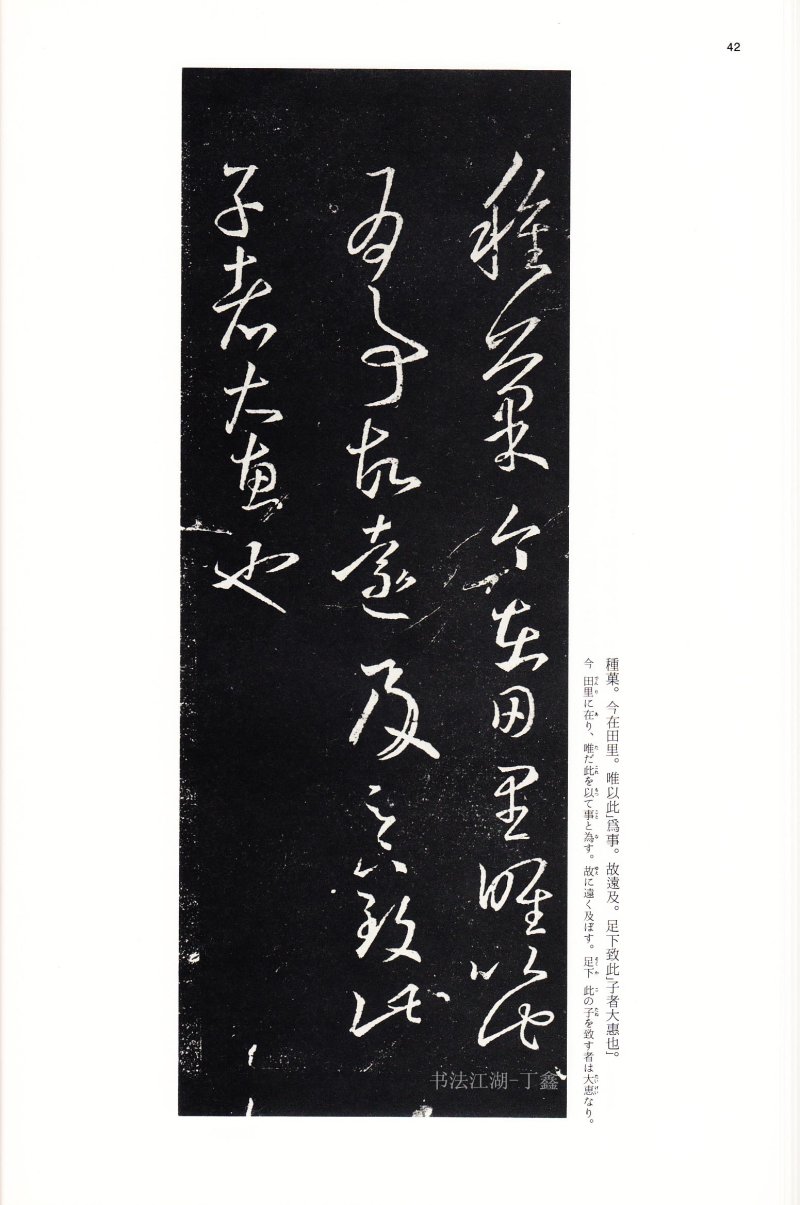 42
種菓今在田里唯以此
為事故遠及足下致此
子者大惠也
種菓。今在田里。唯以此」爲事。故遠及。足下致此」子者大惠也」。
今 田里に在り、唯だ此を以て事と為す。故に遠く及ぼす。足下 此の子を致す者は大惠なり。
书法江湖-丁鑫